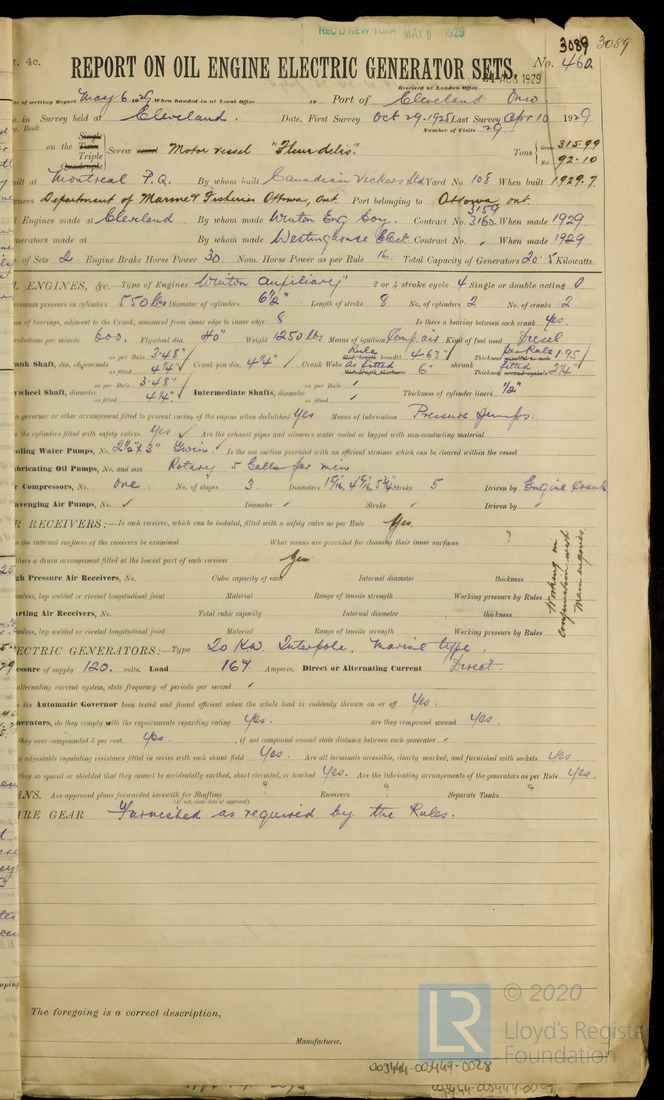 REC'D NEW YORK MAY 9 1929
3089 3089
t. 4c.
REPORT ON OIL ENGINE ELECTRIC GENERATOR SETS. No. 460.
AUG 1929
Received at London Office
te of writing Report May 6 1929 When handed in at Local Office 19 Port of Cleveland Ohio
o. in Survey held at Cleveland. Date, First Survey Oct 29-1928 Last Survey Apr 10 1929
g. Book. Number of Visits 29
on the Single Twin Triple Quadruple Screw vessel Motor vessel "Fleurdelis". Tons Gross 315.99 Net 92.10
ilt at Montreal P.Q. By whom built Canadian Vickers Ltd Yard No. 108 When built 1929.7
ners Department of Marine & Fisheries Ottowa, Ont. Port belonging to Ottowa ont.
l Engines made at Cleveland By whom made Winton Eng Coy. Contract No. 3159 3160. When made 1929
nerators made at By whom made Westinghouse Elect. Contract No. When made 1929
. of Sets 2 Engine Brake Horse Power 30. Nom. Horse Power as per Rule 16. Total Capacity of Generators 20.5 Kilowatts.
L ENGINES, &c.—Type of Engines Winton auxiliary" 2 or 4 stroke cycle 4 Single or double acting 0
ximum pressure in cylinders 550 lbs Diameter of cylinders 6½" Length of stroke 8 No. of cylinders 2 No. of cranks 2
an of bearings, adjacent to the Crank, measured from inner edge to inner edge 8 Is there a bearing between each crank yes.
volutions per minute 600. Flywheel dia. 40" Weight 1250 lbs Means of ignition Comp. air Kind of fuel used Diesel
ank Shaft, dia. of journals as per Rule 3.48" as fitted 4¼" Crank pin dia. 4¼" Crank Webs Rule 4.63" as fitted 6" shrunk Thickness per Rule 1.95 fitted 2¼"
ywheel Shaft, diameter as per Rule 3.48" as fitted 4¼" Intermediate Shafts, diameter as per Rule as fitted Thickness of cylinder liners ½"
a governor or other arrangement fitted to prevent racing of the engine when declutched Yes Means of lubrication Pressure pumps.
e the cylinders fitted with safety valves yes Are the exhaust pipes and silencers water cooled or lagged with non-conducting material
oling Water Pumps, No. 2½ x 3" Twin. Is the sea suction provided with an efficient strainer which can be cleared within the vessel
bricating Oil Pumps, No. and size Rotary 5 Galls per min
r Compressors, No. one No. of stages 3 Diameters Stroke 5 Driven by Engine Crank
avenging Air Pumps, No. Diameter Stroke Driven by
R RECEIVERS:—Is each receiver, which can be isolated, fitted with a safety valve as per Rule Yes.
n the internal surfaces of the receivers be examined What means are provided for cleaning their inner surfaces ?
there a drain arrangement fitted at the lowest part of each receiver Yes
gh Pressure Air Receivers, No. Cubic capacity of each Internal diameter thickness
amless, lap welded or riveted longitudinal joint Material Range of tensile strength Working pressure by Rules
arting Air Receivers, No. Total cubic capacity Internal diameter thickness
amless, lap welded or riveted longitudinal joint Material Range of tensile strength Working pressure by Rules
Working in conjunction with main engines
ECTRIC GENERATORS:—Type 20 Kw. Interpole. Marine type.
essure of supply 120. volts. Load 167 Amperes. Direct or Alternating Current Direct.
alternating current system, state frequency of periods per second
s the Automatic Governor been tested and found efficient when the whole load is suddenly thrown on or off Yes.
nerators, do they comply with the requirements regarding rating yes. are they compound wound yes.
they over compounded 5 per cent. yes. , if not compound wound state distance between each generator
n adjustable regulating resistance fitted in series with each shunt field Yes. Are all terminals accessible, clearly marked, and furnished with sockets yes
they so spaced or shielded that they cannot be accidentally earthed, short circuited, or touched Yes. Are the lubricating arrangements of the generators as per Rule Yes.
ANS. Are approved plans forwarded herewith for Shafting ? Receivers ? Separate Tanks ?
(If not, state date of approval)
RE GEAR Furnished as required by the Rules.
The foregoing is a correct description,
Manufacturer.
LR © 2020
Lloyd's Register
Foundation
003444-003449-0028